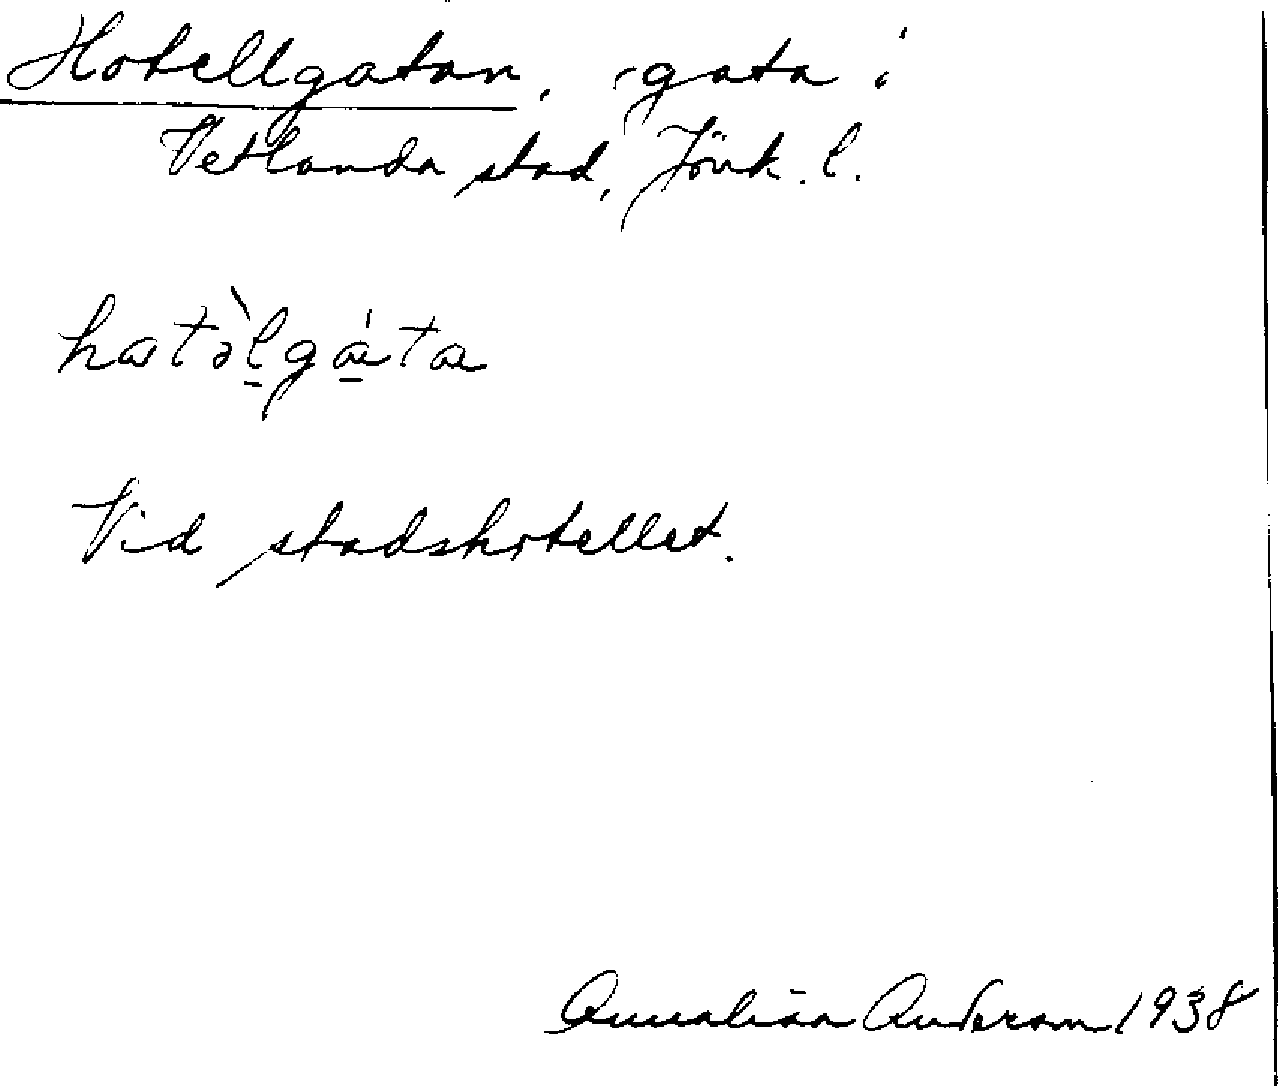 Hotellgatan, gata i
Vetlanda stad, Jönk. l.
hatəlgata
Vid stadshotellet.
Annalisa Anderson 1938